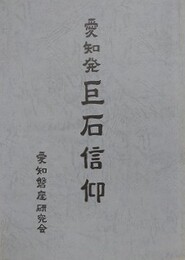 愛知発
巨石信仰
愛知磐座研究会